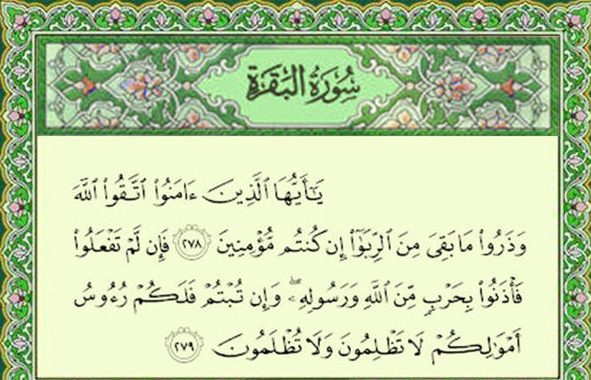 سُورَةُ البَقَرَةِ
يَـٰٓأَيُّهَا ٱلَّذِينَ ءَامَنُوا۟ ٱتَّقُوا۟ ٱللَّهَ
وَذَرُوا۟ مَا بَقِىَ مِنَ ٱلرِّبَوٰٓا۟ إِن كُنتُم مُّؤْمِنِينَ ٢٧٨ فَإِن لَّمْ تَفْعَلُوا۟
فَأْذَنُوا۟ بِحَرْبٍ مِّنَ ٱللَّهِ وَرَسُولِهِۦ ۖ وَإِن تُبْتُمْ فَلَكُمْ رُءُوسُ
أَمْوَٰلِكُمْ لَا تَظْلِمُونَ وَلَا تُظْلَمُونَ ٢٧٩